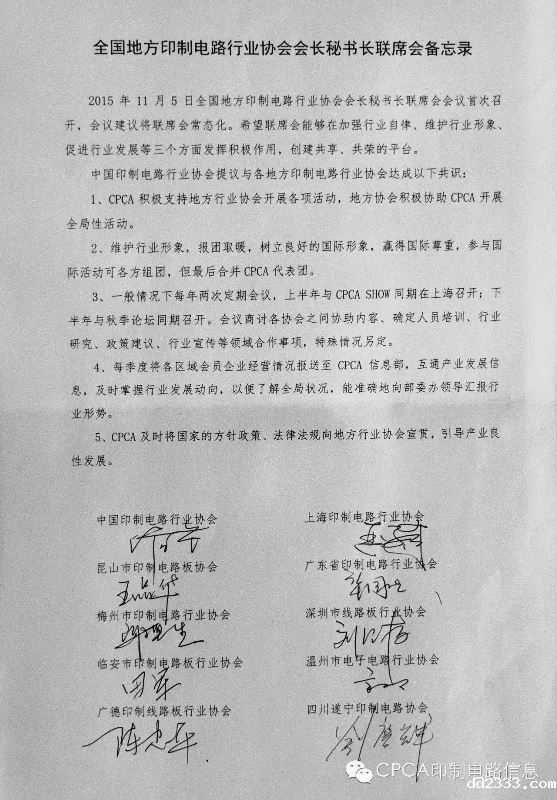 全国地方印制电路行业协会会长秘书长联席会备忘录
2015 年 11 月 5 日全国地方印制电路行业协会会长秘书长联席会会议首次召
开，会议建议将联席会常态化。希望联席会能够在加强行业自律、维护行业形象、
促进行业发展等三个方面发挥积极作用，创建共享、共荣的平台。
中国印制电路行业协会提议与各地方印制电路行业协会达成以下共识：
1、CPCA 积极支持地方行业协会开展各项活动，地方协会积极协助 CPCA 开展
全局性活动。
2、维护行业形象，报团取暖，树立良好的国际形象，赢得国际尊重，参与国
际活动可各方组团，但最后合并 CPCA 代表团。
3、一般情况下每年两次定期会议，上半年与 CPCA SHOW 同期在上海召开；下
半年与秋季论坛同期召开。会议商讨各协会之间协助内容、确定人员培训、行业
研究、政策建议、行业宣传等领域合作事项，特殊情况另定。
4、每季度将各区域会员企业经营情况报送至 CPCA 信息部，互通产业发展信
息，及时掌握行业发展动向，以便了解全局状况，能准确地向部委办领导汇报行
业形势。
5、CPCA 及时将国家的方针政策、法律法规向地方行业协会宣贯，引导产业良
性发展。
中国印制电路行业协会 上海印制电路行业协会
昆山市印制电路板协会 广东省印制电路行业协会
梅州市印制电路行业协会 深圳市线路板行业协会
刘
临安市印制电路板行业协会 温州市电子电路行业协会
广德印制线路板行业协会 四川遂宁印制电路协会
陈
CPCA印制电路信息
dd2333.com